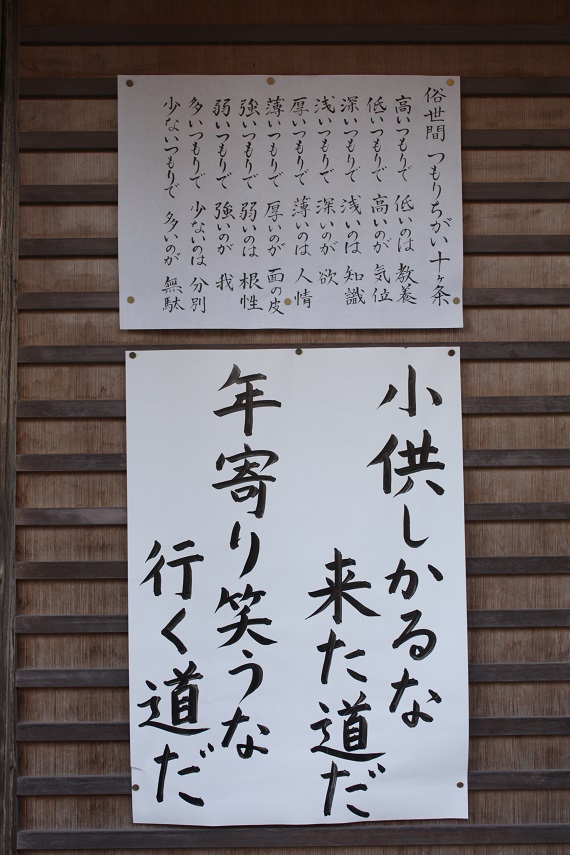 俗世間 つもりちがい十ヶ条
高いつもりで 低いのは 教養
低いつもりで 高いのが 気位
深いつもりで 浅いのは 知識
浅いつもりで 深いのが 欲
厚いつもりで 薄いのは 人情
薄いつもりで 厚いのが 面の皮
強いつもりで 弱いのは 根性
弱いつもりで 強いのが 我
多いつもりで 少ないのは 分別
少ないつもりで 多いのが 無駄
小供しかるな
来た道だ
年寄り笑うな
行く道だ